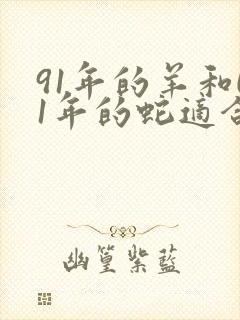 91年的羊和
1年的蛇適合
幽篁紫藍